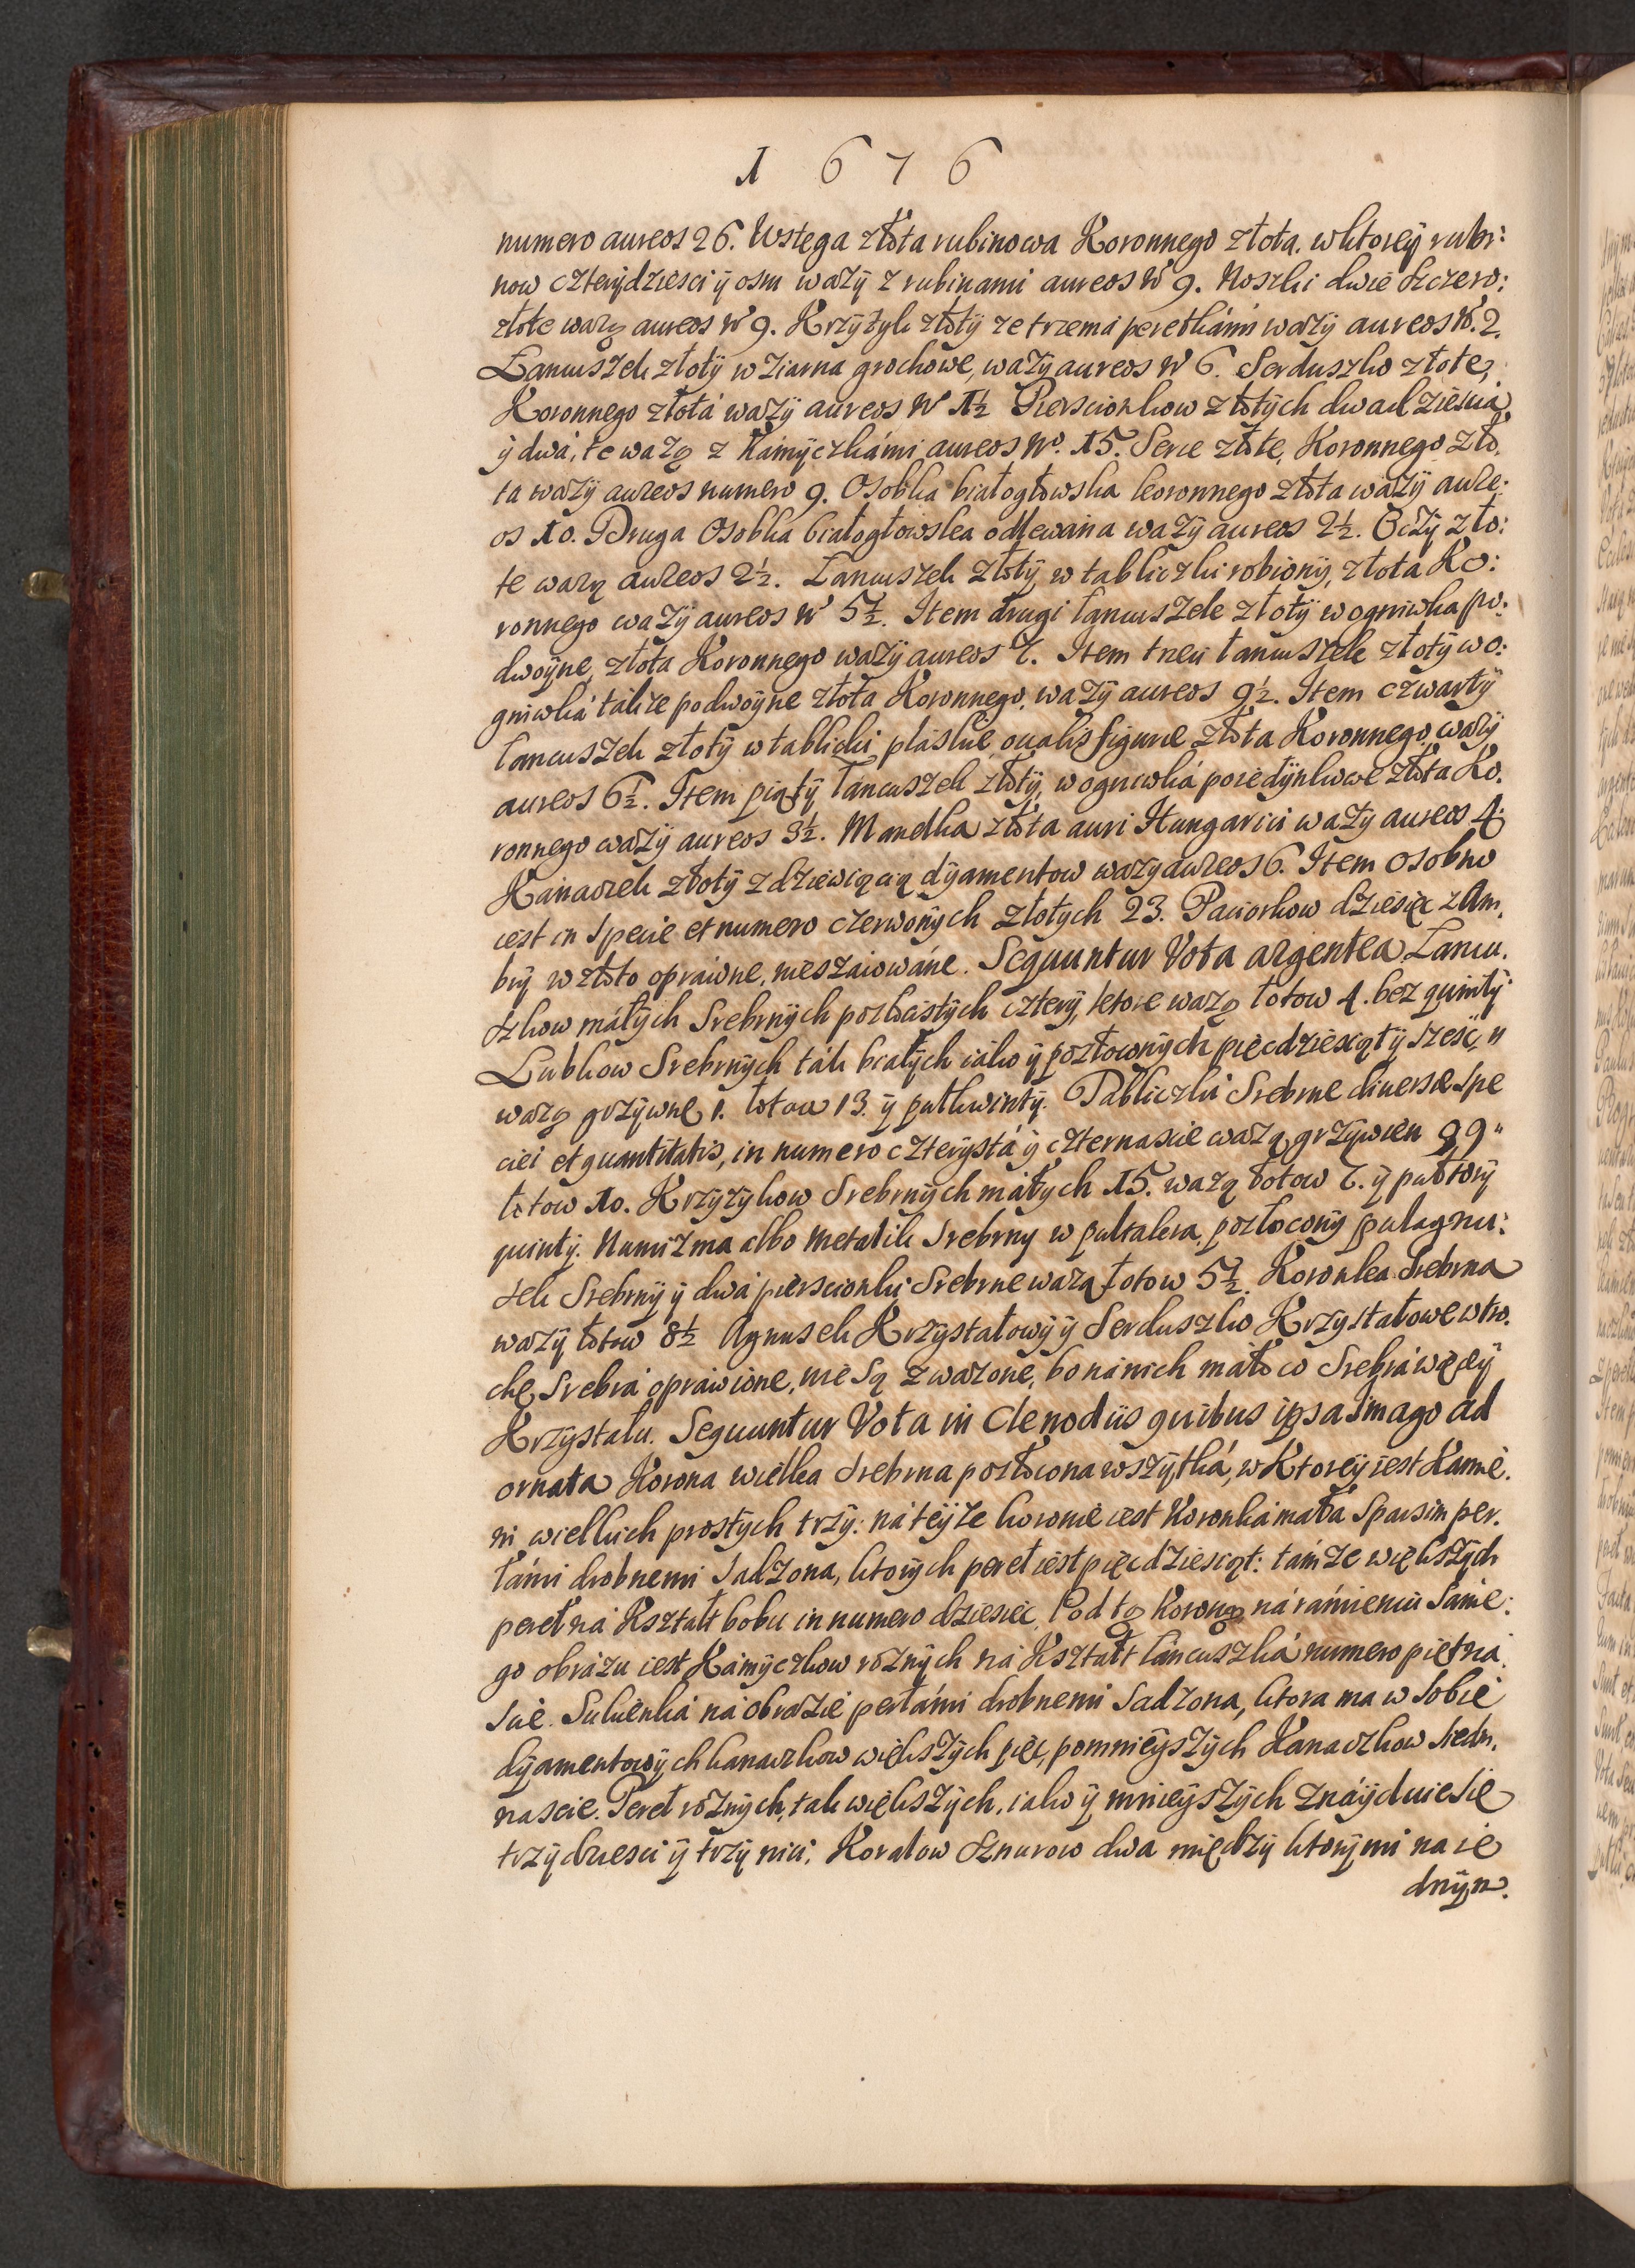 1 6 7 6
numero aureos 26. Wstęga złota rubinowa Koronnego złota, w ktoreÿ rubi:
now czterÿdziesci ÿ osm wazÿ z rubinami aureos N 9. Noszki dwie szczero:
złote wazą aureos N 9. Krzÿzÿk złotÿ ze trzema perełkámi wazÿ aureos N. 2.
Łancuszek złotÿ w ziarna grochowe, wazÿ aureos N 6. Serduszko złote,
Koronnego złotá wazÿ aureos N 1½ Pierscionkow złotÿch dwadziesciá
ÿ dwá, te wazą z Kámÿczkámi aureos No. 15. Serce złote, Koronnego zło,
ta wazÿ aureos numero 9. Osobka białogłowska koronnego złota wazÿ aure:
os 10. Druga Osobka białogłowska odlewána wazÿ aureos 2½. Oczÿ zło:
te wazą aureos 2½. Łancuszek złotÿ w tabliczki robionÿ, złota Ko:
ronnego wazÿ aureos N 5½. Item drugi łancuszek złotÿ w ogniwka po:
dwoÿne, złota Koronnego wazÿ aureos 7. Item trzeci łancuszek złotÿ w o:
gniwká takze podwoÿne złota Koronnego, wazÿ aureos 9½. Item czwartÿ
łancuszek złotÿ w tablicki pláskie oualis figurae złota Koronnego, wazÿ
aureos 6½. Item piątÿ łáncuszek złotÿ, w ogniwká poiedÿnkowe złota Ko.
ronnego wazÿ aureos 3½. Manelka złota auri Hungarici wazÿ aureos 4.
Kánaczek złotÿ z dziewiącią dÿamentow wazÿ aureos 6. Item osobno
iest in specie et numero czerwonÿch złotÿch 23. Paciorkow dziesięc z Am,
brÿ w złoto opráwne, nieszácowáne. Sequuntur Vota argentea Łancu.
szkow máłÿch Srebrnÿch pozłocistÿch czterÿ, ktore wazą łotow 4. bez quintÿ
Łubkow Srebrnÿch ták białÿch iáko ÿ pozłocnÿch pięcdziesiąt ÿ szesć,
wazą grzÿwnę 1. łotow 13. ÿ pułkwintÿ. Tabliczki Srebrne diuersae spe
ciei et quantitatis, in numero czterÿstá ÿ czternascie wazą, grzÿwien 29
łotow 10. Krzÿzÿkow Srebrnÿch máłÿch 15. wazą łotow 7. ÿ pułtorÿ
quintÿ. Numizma albo metalik Srebrny w pultalera, pozłoconÿ pulagnu:
sek Srebrnÿ ÿ dwá pierscionki Srebrne wazą łotow 5½. Koronka Srebrna
wazÿ łotow 8½ Agnusek Krzÿstałowÿ ÿ Serduszko Krzÿstałowe w tro.
chę, Srebrá opráwione, nie są zwazone, bo ná nich máło co Srebrá więceÿ
Krzÿstału. Sequuntur Vota in Clenodiis quibus ipsa Imago ad
ornata Korona wielka Srebrna pozłocona wszÿtká, w Ktoreÿ iest Kamie.
ni wielkich prostÿch trzÿ: ná teÿze koronie iest Koronká máłá Sparsim per.
łámi drobnemi Sadzona, ktorÿch pereł iest pięcdziesiąt: támze większÿch
pereł ná Kształt bobu in numero dziesięc, Pod tą Koroną ná rámieniu Same:
go obrázu iest Kámÿczkow roznÿch ná Kształt łáncuszká numero piętná
scie. Sukienká ná obrazie perłámi drobnemi Sadzona, ktora ma w Sobie
dÿamentowÿch kanaczkow większÿch pięc, pomnieÿszÿch Kanaczkow siedm,
nascie. Pereł roznÿch, tak większÿch, iako ÿ mnieÿszÿch znáÿduie się
trzÿdziesci ÿ trzÿ nici, Koralow sznurow dwa międzÿ ktorÿmi na ie
dnÿm.